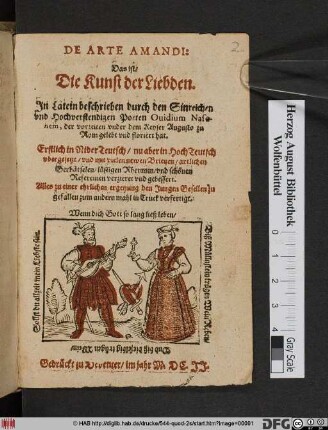 DE ARTE AMANDI:
2
Das ist/
Die Kunst der Liebden.
In Latein beschrieben durch den Sinreichen
vnd Hochverstendigen Poeten Ovidium Naso-
nem, der vorzeiten vnder dem Keyser Augusto zu
Rom gelebt vnd floriert hat.
Erstlich in Nider Teutsch/ nu aber in Hoch Teutsch
vbergesezt/ vnd mit vielen newen
artlichen
lüstigen Rhetmmen/ vnd schönen
verzieret vnd gebessert.
Alles zu einer ehrlichen ergetzung den Jungen Gesellen zu
gefallen zum andern mahl in Truck verfertigt.
Wenn dich Gott so lang liest leben/
Soltst du allzeit mein Liebste sein.
Gedrückt zu
im jahr M. DC. II.
Herzog August Bibliothek
Wolfenbüttel
Gray Scale
© HAB http://diglib.hab.de/drucke/544-quod-2s/start.htm?image=00001
DFG